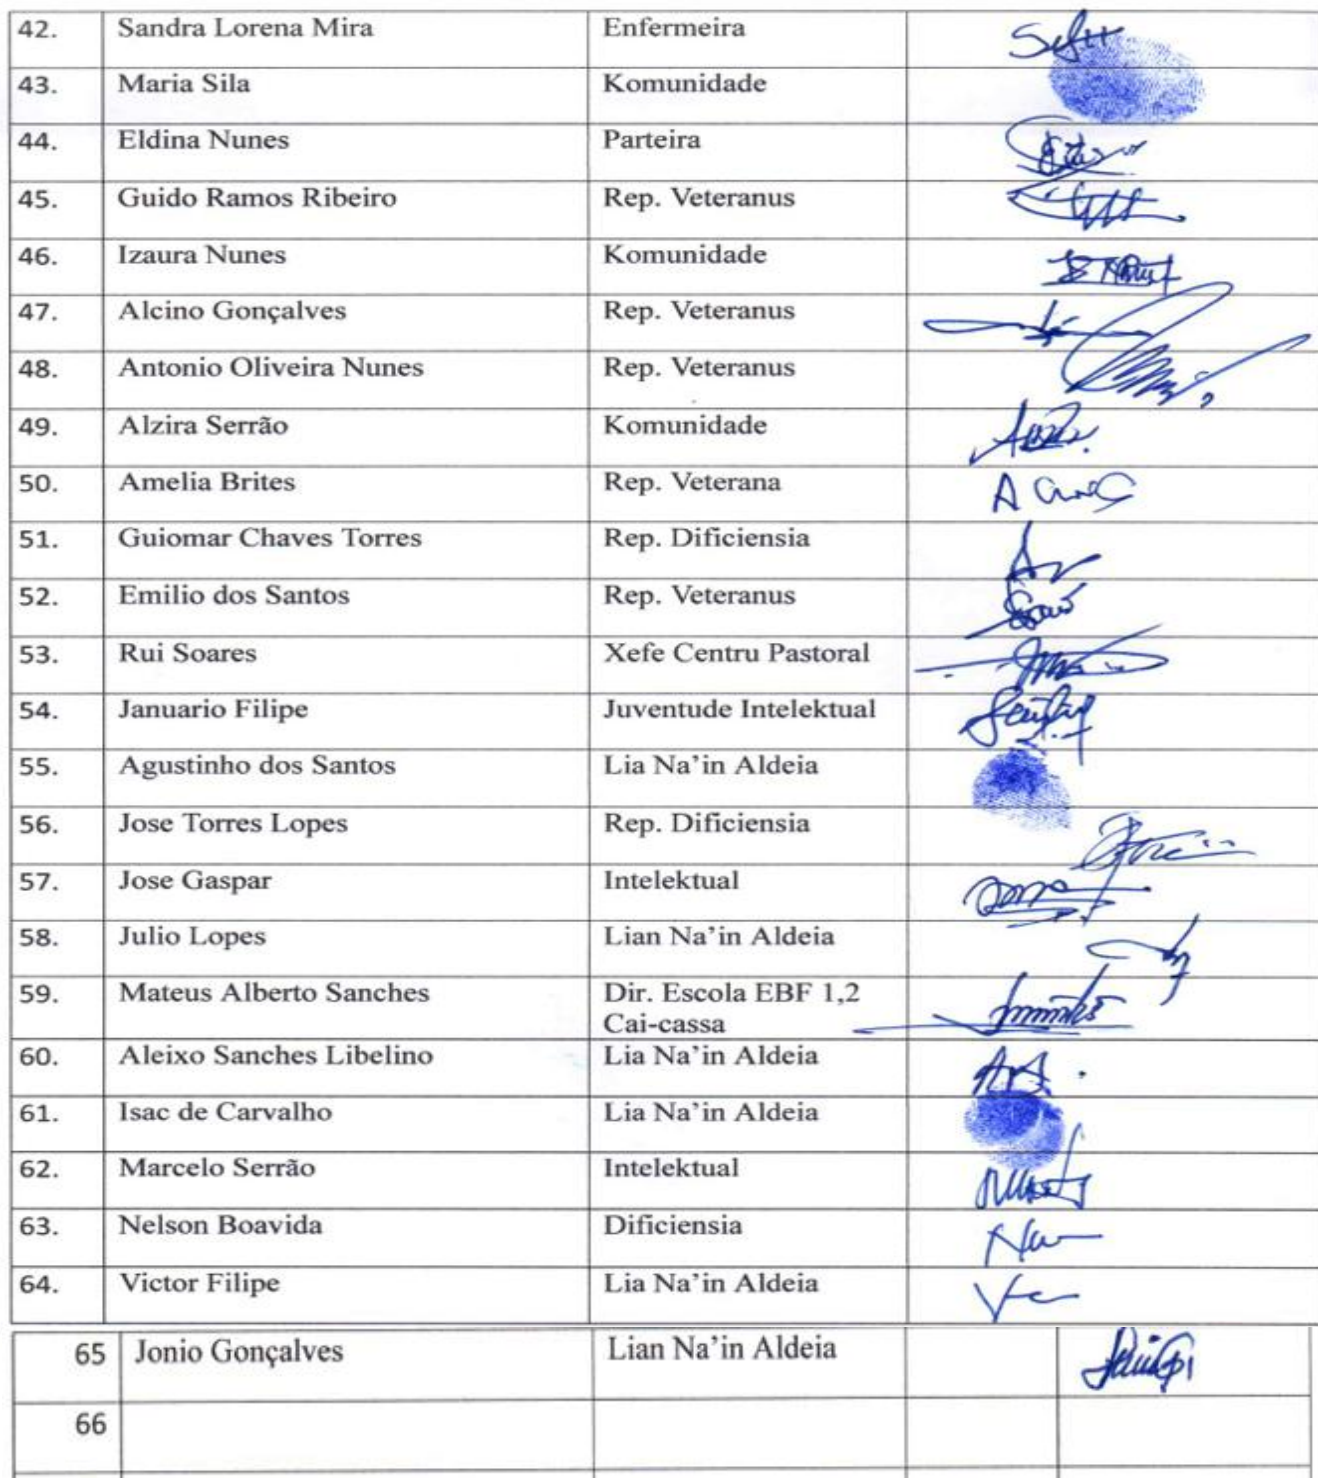 42. Sandra Lorena Mira Enfermeira
43. Maria Sila Komunidade
44. Eldina Nunes Parteira
45. Guido Ramos Ribeiro Rep. Veteranus
46. Izaura Nunes Komunidade
47. Alcino Gonçalves Rep. Veteranus
48. Antonio Oliveira Nunes Rep. Veteranus
49. Alzira Serrão Komunidade
50. Amelia Brites Rep. Veterana
51. Guiomar Chaves Torres Rep. Dificiensia
52. Emilio dos Santos Rep. Veteranus
53. Rui Soares Xefe Centru Pastoral
54. Januario Filipe Juventude Intelektual
55. Agustinho dos Santos Lia Na’in Aldeia
56. Jose Torres Lopes Rep. Dificiensia
57. Jose Gaspar Intelektual
58. Julio Lopes Lian Na’in Aldeia
59. Mateus Alberto Sanches Dir. Escola EBF 1,2
Cai-cassa
60. Aleixo Sanches Libelino Lia Na’in Aldeia
61. Isac de Carvalho Lia Na’in Aldeia
62. Marcelo Serrão Intelektual
63. Nelson Boavida Dificiensia
64. Victor Filipe Lia Na’in Aldeia
65 Jonio Gonçalves Lian Na’in Aldeia
66